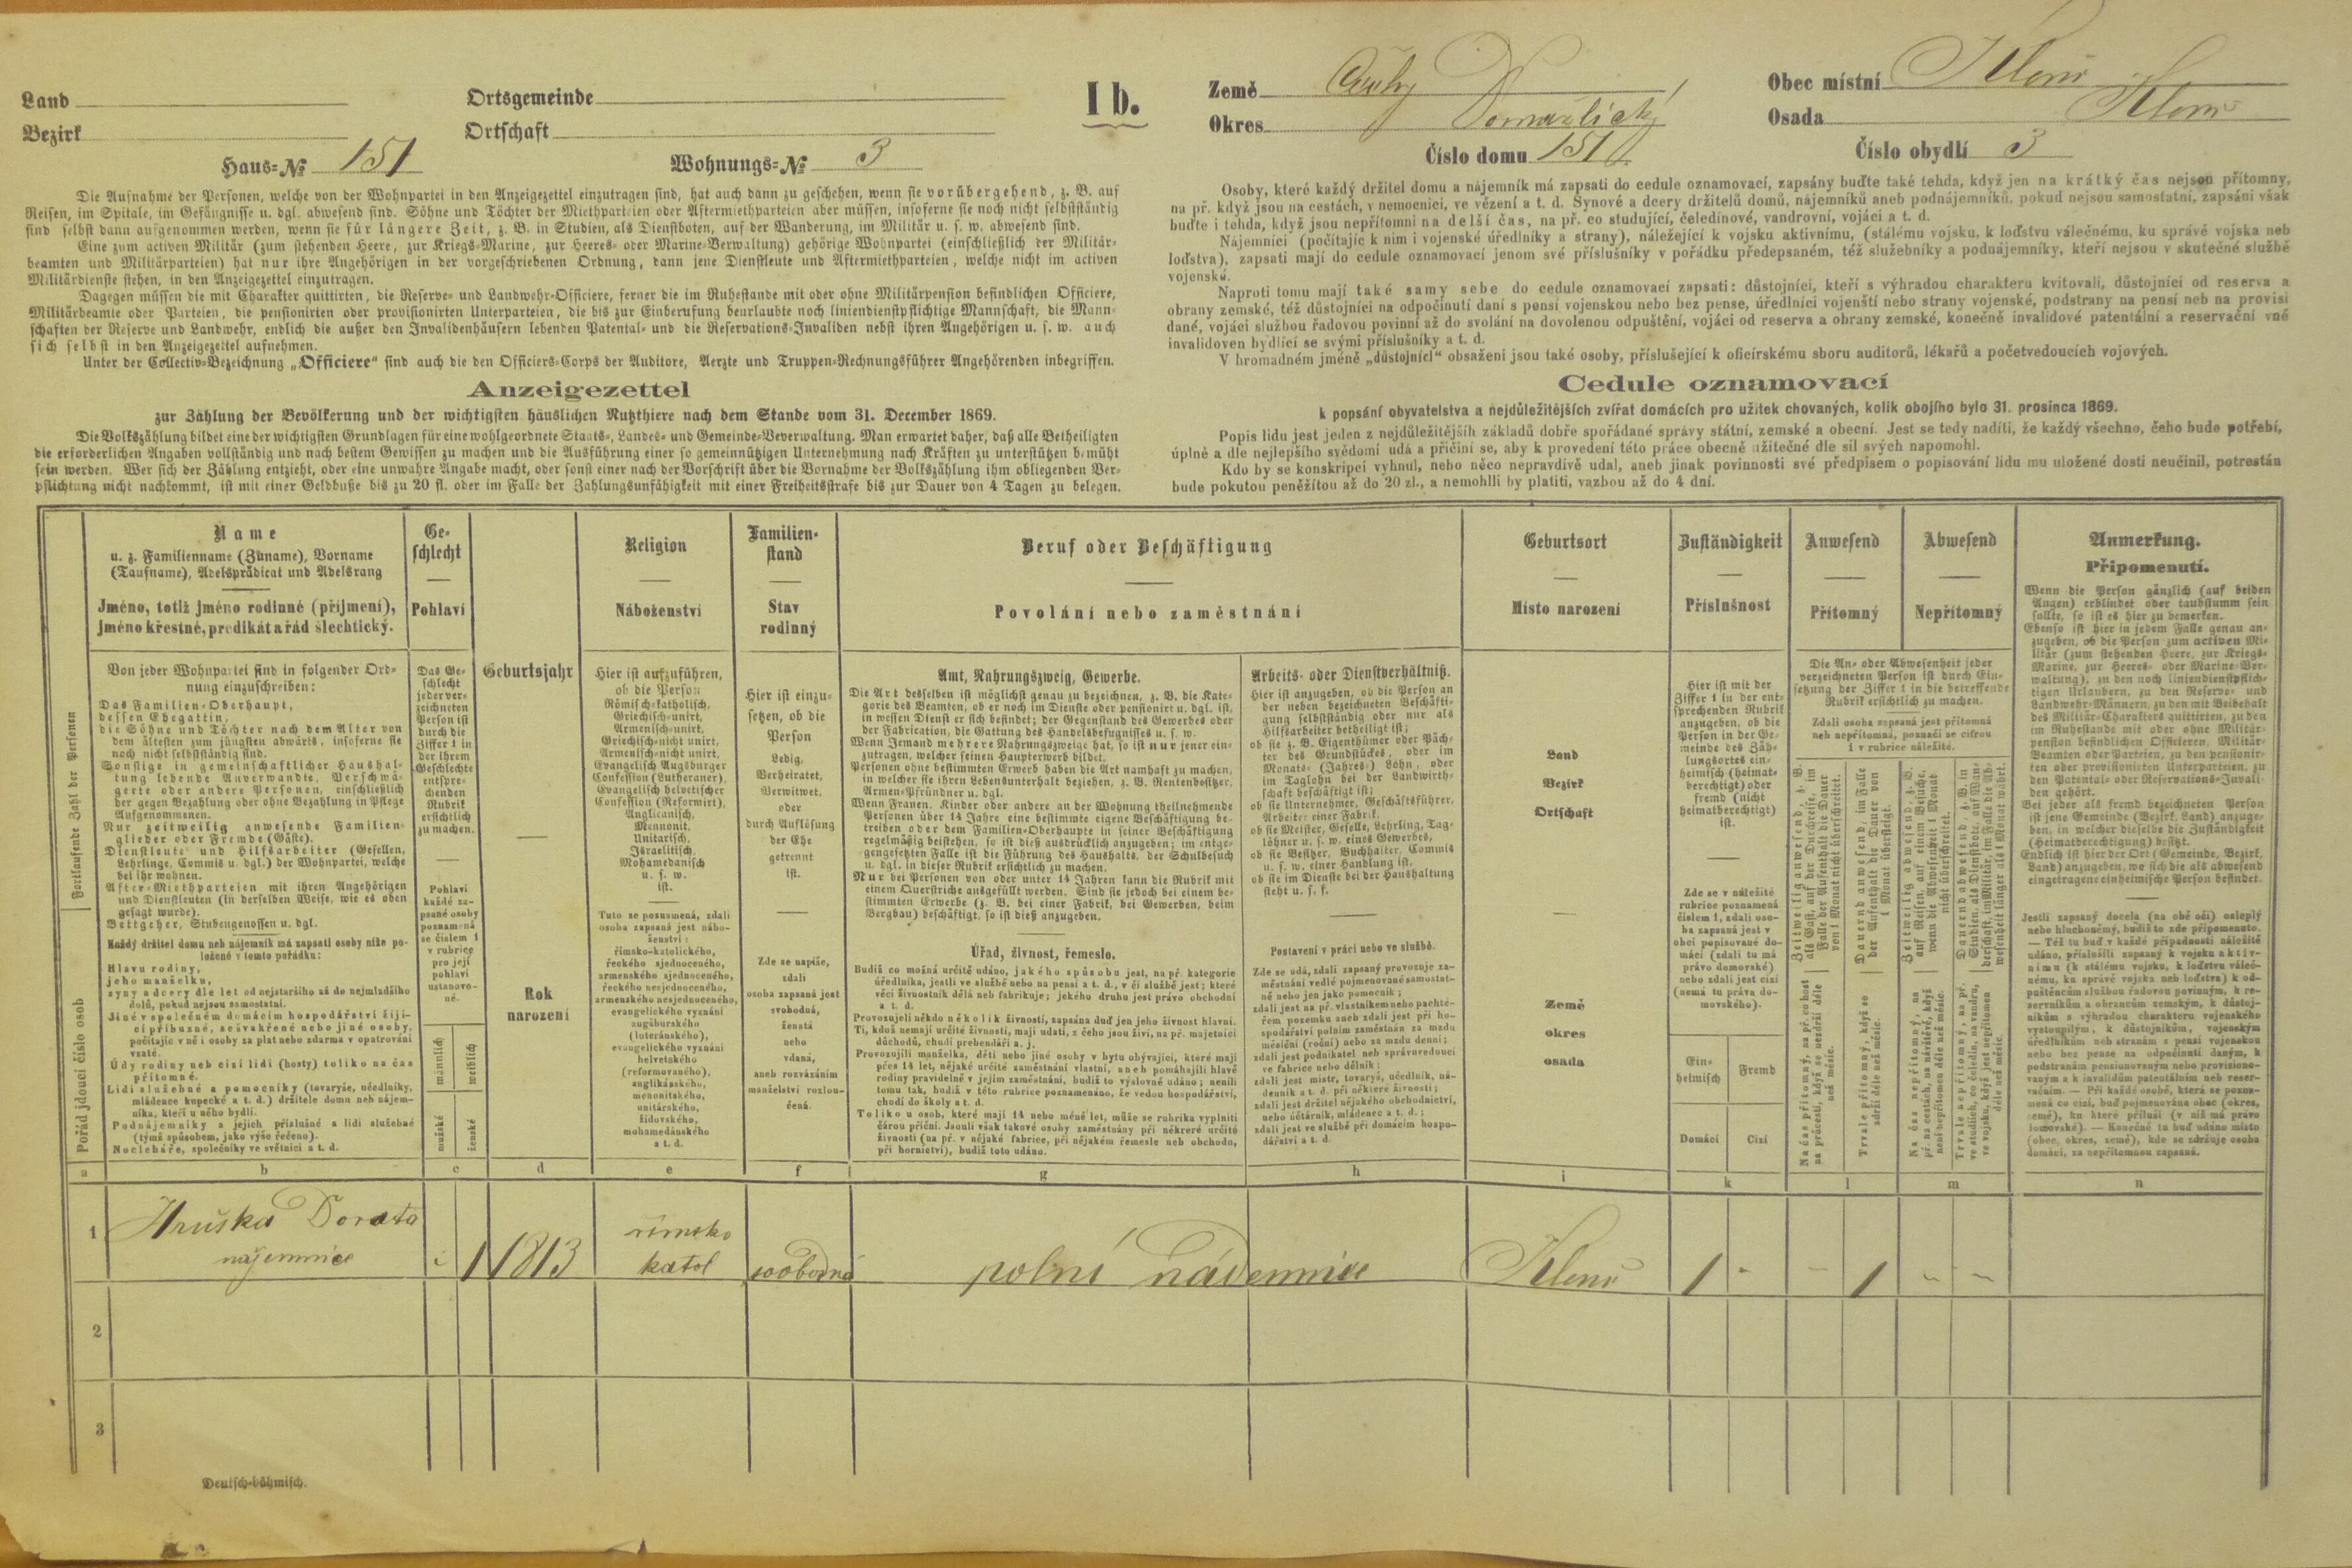 Land
Bezirk
Ortsgemeinde
Ortschaft
Haus-№ 151
Wohnungs-№ 3
I b.
Země Čechy
Okres Domažlický
Číslo domu 151
Obec místní Kleně
Osada Kleně
Číslo obydlí 3
Die Aufnahme der Personen, welche von der Wohnpartei in den Anzeigezettel einzutragen sind, hat auch dann zu geschehen, wenn sie vorübergehend, z. B. auf
Reisen, im Spitale, im Gefängnisse u. dgl. abwesend sind. Söhne und Töchter der Miethparteien oder Aftermiethparteien aber müssen, insoferne sie noch nicht selbstständig
sind selbst dann aufgenommen werden, wenn sie für längere Zeit, z. B. in Studien, als Dienstboten, auf der Wanderung, im Militär u. s. w. abwesend sind.
Eine zum activen Militär (zum stehenden Heere, zur Kriegs-Marine, zur Heeres- oder Marine-Verwaltung) gehörige Wohnpartei (einschließlich der Militär-
beamten und Militärparteien) hat nur ihre Angehörigen in der vorgeschriebenen Ordnung, dann jene Dienstleute und Aftermiethparteien, welche nicht im activen
Militärdienste stehen, in den Anzeigezettel einzutragen.
Dagegen müssen die mit Charakter quittirten, die Reserve- und Landwehr-Officiere, ferner die im Ruhestande mit oder ohne Militärpension befindlichen Officiere,
Militärbeamte oder Parteien, die pensionirten oder provisionirten Unterparteien, die bis zur Einberufung beurlaubte noch liniendienstpflichtige Mannschaft, die Mann-
schaften der Reserve und Landwehr, endlich die außer den Invalidenhäusern lebenden Patental- und die Reservations-Invaliden nebst ihren Angehörigen u. s. w. auch
sich selbst in den Anzeigezettel aufnehmen.
Unter der Collectiv-Bezeichnung „Officiere“ sind auch die den Officiers-Corps der Auditore, Aerzte und Truppen-Rechnungsführer Angehörenden inbegriffen.
Anzeigezettel
zur Zählung der Bevölkerung und der wichtigsten häuslichen Nutzthiere nach dem Stande vom 31. December 1869.
Die Volkszählung bildet eine der wichtigsten Grundlagen für eine wohlgeordnete Staats-, Landes- und Gemeinde-Beverwaltung. Man erwartet daher, daß alle Betheiligten
die erforderlichen Angaben vollständig und nach bestem Gewissen zu machen und die Ausführung einer so gemeinnützigen Unternehmung nach Kräften zu unterstützen bemüht
sein werden. Wer sich der Zählung entzieht, oder eine unwahre Angabe macht, oder sonst einer nach der Vorschrift über die Vornahme der Volkszählung ihm obliegenden Ver-
pflichtung nicht nachkommt, ist mit einer Geldbuße bis zu 20 fl. oder im Falle der Zahlungsunfähigkeit mit einer Freiheitsstrafe bis zur Dauer von 4 Tagen zu belegen.
Osoby, které každý držitel domu a nájemník má zapsati do cedule oznamovací, zapsány buďte také tehda, když jen na krátký čas nejsou přítomny,
na př. když jsou na cestách, v nemocnici, ve vězení a t. d. Synové a dcery držitelů domů, nájemníků aneb podnájemníků, pokud nejsou samostatní, zapsáni však
buďte i tehda, když jsou nepřítomni na delší čas, na př. co studující, čeledínové, vandrovní, vojáci a t. d.
Nájemníci (počítajíc k nim i vojenské úředlníky a strany), náležející k vojsku aktivnímu, (stálému vojsku, k loďstvu válečnému, ku správě vojska neb
loďstva), zapsati mají do cedule oznamovací jenom své příslušníky v pořádku předepsaném, též služebníky a podnájemníky, kteří nejsou v skutečné službě
vojenské.
Naproti tomu mají také samy sebe do cedule oznamovací zapsati: důstojníci, kteří s výhradou charakteru kvitovali, důstojníci od reserva a
obrany zemské, též důstojníci na odpočinutí daní s pensí vojenskou nebo bez pense, úředlníci vojenští nebo strany vojenské, podstrany na pensí neb na provisi
dané, vojáci službou řadovou povinní až do svolání na dovolenou odpuštění, vojáci od reserva a obrany zemské, konečně invalidové patentální a reservační vně
invalidoven bydlící se svými příslušníky a t. d.
V hromadném jméně „důstojníci“ obsaženi jsou také osoby, příslušející k oficírskému sboru auditorů, lékařů a početvedoucích vojových.
Cedule oznamovací
k popsání obyvatelstva a nejdůležitějších zvířat domácích pro užitek chovaných, kolik obojího bylo 31. prosince 1869.
Popis lidu jest jeden z nejdůležitějšíh základů dobře spořádané správy státní, zemské a obecní. Jest se tedy nadíti, že každý všechno, čeho bude potřebí,
úplně a dle nejlepšího svědomí udá a přičiní se, aby k provedení této práce obecně užitečné dle sil svých napomohl.
Kdo by se konskripci vyhnul, nebo něco nepravdivě udal, aneb jinak povinnosti své předpisem o popisování lidu mu uložené dosti neučinil, potrestán
bude pokutou peněžitou až do 20 zl., a nemohlli by platiti, vazbou až do 4 dní.
Fortlaufende Zahl der Personen
Pořád jdoucí číslo osob
Name
u. z. Familienname (Zuname), Vorname
(Taufname), Adelsprädicat und Adelsrang
Jméno, totiž jméno rodinné (příjmení),
jméno křestné, predikát a řád šlechtický.
Von jeder Wohnpartei sind in folgender Ord-
nung einzuschreiben:
Das Familien-Oberhaupt,
dessen Ehegattin,
die Söhne und Töchter nach dem Alter von
dem ältesten zum jüngsten abwärts, insoferne sie
noch nicht selbstständig sind.
Sonstige in gemeinschaftlicher Haushal-
tung lebende Anverwandte, Verschwä-
gerte oder andere Personen, einschließlich
der gegen Bezahlung oder ohne Bezahlung in Pflege
Aufgenommenen.
Nur zeitweilig anwesende Familien-
glieder oder Fremde (Gäste).
Dienstleute und Hilfsarbeiter (Gesellen,
Lehrlinge, Commis u. dgl.) der Wohnpartei, welche
bei ihr wohnen.
After-Miethparteien mit ihren Angehörigen
und Dienstleuten (in derselben Weise, wie es oben
gesagt wurde).
Bettgeher, Stubengenossen u. dgl.
Každý držitel domu neb nájemník má zapsati osoby níže po-
ložené v tomto pořádku:
Hlavu rodiny,
jeho manželku,
syny a dcery dle let od nejstaršího až do nejmladšího
dolů, pokud nejsou samostatní.
Jiné v společném domácím hospodářství žijí-
cí příbuzné, sešvakřené nebo jiné osoby,
počítajíc v ně i osoby za plat nebo zdarma v opatrování
vzaté.
Údy rodiny neb cizí lidi (hosty) toliko na čas
přítomné.
Lidi služebné a pomocníky (tovaryše, učedlníky,
mládence kupecké a t. d.) držitele domu neb nájem-
níka, kteří u něho bydlí.
Podnájemníky a jejich příslušné a lidi služebné
(týmž spůsobem, jako výše řečeno).
Nocleháře, společníky ve světnici a t. d.
Ge-
schlecht
Pohlaví
Das Ge-
schlecht
jeder ver-
zeichneten
Person ist
durch die
Ziffer 1 in
der ihrem
Geschlechte
entspre-
chenden
Rubrik
ersichtlich
zu machen.
Pohlaví
každé za-
psané osoby
poznamená
se číslem 1
v rubrice
pro její
pohlaví
ustanove-
né.
männlich
weiblich
mužské
ženské
Geburtsjahr
Rok
narození
Religion
Náboženství
Hier ist aufzuführen,
ob die Person
Römisch-katholisch,
Griechisch-unirt,
Armenisch-unirt,
Griechisch-nicht unirt,
Armenisch-nicht unirt,
Evangelisch Augsburger
Confession (Lutheraner),
Evangelisch helvetischer
Confession (Reformirt),
Anglicanisch,
Mennonit,
Unitarisch,
Israelitisch,
Mohamedanisch
u. s. w.
ist.
Tuto se poznamená, zdali
osoba zapsaná jest nábo-
ženství:
římsko-katolického,
řeckého sjednoceného,
armenského sjednoceného,
řeckého nesjednoceného,
armenského nesjednoceného,
evangelického vyznání
augšburského
(lotheránského),
evangelického vyznání
helvetského
(reformovaného),
anglikánského,
menonitského,
unitářského,
židovského,
mohamedánského
a t. d.
Familien-
stand
Stav
rodinný
Hier ist einzu-
setzen, ob die
Person
Ledig,
Verheiratet,
Verwitwet,
oder
durch Auflösung
der Ehe
getrennt
ist.
Zde se napíše,
zdali
osoba zapsaná jest
svobodná,
ženatá
nebo
vdaná,
aneb rozvázáním
manželství rozlou-
čená.
Beruf oder Beschäftigung
Povolání nebo zaměstnání
Amt, Nahrungszweig, Gewerbe.
Die Art desselben ist möglichst genau zu bezeichnen, z. B. die Kate-
gorie des Beamten, ob er noch im Dienste oder pensionirt u. dgl. ist,
in wessen Dienst er sich befindet; der Gegenstand des Gewerbes oder
der Fabrication, die Gattung des Handelsbefugnisses u. s. w.
Wenn Jemand mehrere Nahrungszweige hat, so ist nur jener ein-
zutragen, welcher seinen Haupterwerb bildet.
Personen ohne bestimmten Erwerb haben die Art namhaft zu machen,
in welcher sie ihren Lebensunterhalt beziehen, z. B. Rentenbesitzer,
Armen-Pfründner u. dgl.
Wenn Frauen, Kinder oder andere an der Wohnung theilnehmende
Personen über 14 Jahre eine bestimmte eigene Beschäftigung be-
treiben oder dem Familien-Oberhaupte in seiner Beschäftigung
regelmäßig beistehen, so ist dieß ausdrücklich anzugeben; im entge-
gengesetzten Falle ist die Führung des Haushalts, der Schulbesuch
u. dgl. in dieser Rubrik ersichtlich zu machen.
Nur bei Personen von oder unter 14 Jahren kann die Rubrik mit
einem Querstriche ausgefüllt werden. Sind sie jedoch bei einem be-
stimmten Erwerbe (z. B. bei einer Fabrik, bei Gewerben, beim
Bergbau) beschäftigt, so ist dieß anzugeben.
Úřad, živnost, řemeslo.
Budiž co možná určitě udáno, jakého spůsobu jest, na př. kategorie
úředlníka, jestli ve službě nebo na pensi a t. d., v čí službě jest; které
věci živnostník dělá neb fabrikuje; jakého druhu jest právo obchodní
a t. d.
Provozujeli někdo několik živností, zapsána buď jen jeho živnost hlavní.
Ti, kdož nemají určité živnosti, mají udati, z čeho jsou živi, na př. majetníci
důchodů, chudí prebendáři a. j.
Provozujíli manželka, děti nebo jiné osoby v bytu obývající, které mají
přes 14 let, nějaké určité zaměstnání vlastní, aneb pomáhajíli hlavě
rodiny pravidelně v jejím zaměstnání, budiž to výslovně udáno; neníli
tomu tak, budiž v této rubrice poznamenáno, že vedou hospodářství,
chodí do školy a t. d.
Toliko u osob, které mají 14 nebo méně let, může se rubrika vyplniti
čárou příční. Jsouli však takové osoby zaměstnány při některé určité
živnosti (na př. v nějaké fabrice, při nějakém řemesle neb obchodu,
při hornictví), budiž toto udáno.
Arbeits- oder Dienstverhältniß.
Hier ist anzugeben, ob die Person an
der neben bezeichneten Beschäfti-
gung selbstständig oder nur als
Hilfsarbeiter betheiligt ist;
ob sie z. B. Eigenthümer oder Päch-
ter des Grundstückes, oder im
Monats- (Jahres-) Lohn, oder
im Taglohn bei der Landwirth-
schaft beschäftigt ist;
ob sie Unternehmer, Geschäftsführer,
Arbeiter einer Fabrik,
ob sie Meister, Geselle, Lehrling, Tag-
löhner u. s. w. eines Gewerbes,
ob sie Besitzer, Buchhalter, Commis
u. s. w. einer Handlung ist,
ob sie im Dienste bei der Haushaltung
steht u. s. f.
Postavení v práci nebo ve službě.
Zde se udá, zdali zapsaný provozuje za-
městnání vedlé pojmenované samostat-
ně nebo jen jako pomocník;
zdali jest na př. vlastníkem nebo pachté-
řem pozemku aneb zdali jest při ho-
spodářství polním zaměstnán za mzdu
měsíční (roční) nebo za mzdu denní;
zdali jest podnikatel neb správuvedoucí
ve fabrice nebo dělník;
zdali jest mistr, tovaryš, učedlník, ná-
denník a t. d. při některé živnosti;
zdali jest držitel nějakého obchodnictví,
nebo účtárník, mládenec a t. d.;
zdali jest ve službě při domácím hospo-
dářství a t. d.
Geburtsort
Místo narození
Land
Bezirk
Ortschaft
Země
okres
osada
Zuständigkeit
Příslušnost
Hier ist mit der
Ziffer 1 in der ent-
sprechenden Rubrik
anzugeben, ob die
Person in der Ge-
meinde des Zäh-
lungsortes ein-
heimisch (heimat-
berechtigt) oder
fremd (nicht
heimatberechtigt)
ist.
Zde se v náležité
rubrice poznamená
číslem 1, zdali oso-
ba zapsaná jest v
obci popisované do-
mácí (zdali tu má
právo domovské)
nebo zdali jest cizí
(nemá tu práva do-
movského).
Ein-
heimisch
Fremd
Domácí
Cizí
Anwesend
Přítomný
Abwesend
Nepřítomný
Die An- oder Abwesenheit jeder
verzeichneten Person ist durch Ein-
setzung der Ziffer 1 in die betreffende
Rubrik ersichtlich zu machen.
Zdali osoba zapsaná jest přítomná
neb nepřítomná, poznačí se cifrou
1 v rubrice náležité.
Zeitweilig anwesend, z. B.
als Gast, auf der Durchreise, im
Falle der Aufenthalt die Dauer
von 1 Monat nicht überschreitet.
Dauernd anwesend, im Falle
der Aufenthalt die Dauer von
1 Monat übersteigt.
Zeitweilig abwesend, z. B.
auf Reisen, auf einem Besuche,
wenn die Abwesenheit 1 Monat
nicht überschreitet.
Dauernd abwesend, z. B. in
Studien, als Dienstbote, auf Wan-
derschaft, im Militär, im Falle die Ab-
wesenheit länger als 1 Monat währt.
Na čas přítomný, na př. co host
na průcestí, když se nezdrží déle
než měsíc.
Trvale přítomný, když se
zdrží déle než měsíc.
Na čas nepřítomný, na
př. na cestách, na návštěvě, když
není nepřítomen déle než měsíc.
Trvale nepřítomný, na př.
ve studiích, co čeledín, na vandru,
ve vojsku, když jest nepřítomen
déle než měsíc.
Anmerkung.
Připomenutí.
Wenn die Person gänzlich (auf beiden
Augen) erblindet oder taubstumm sein
sollte, so ist es hier zu bemerken.
Ebenso ist hier in jedem Falle genau an-
zugeben, ob die Person zum activen Mi-
litär (zum stehenden Heere, zur Kriegs-
Marine, zur Heeres- oder Marine-Ver-
waltung), zu den noch liniendienstpflich-
tigen Urlaubern, zu den Reserve- und
Landwehr-Männern, zu den mit Beibehalt
des Militär-Charakters quittirten, zu den
im Ruhestande mit oder ohne Militär-
pension befindlichen Officieren, Militär-
Beamten oder Parteien, zu den pensionir-
ten oder provisionirten Unterparteien, zu
den Patental- oder Reservations-Invali-
den gehört.
Bei jeder als fremd bezeichneten Person
ist jene Gemeinde (Bezirk, Land) anzuge-
ben, in welcher dieselbe die Zuständigkeit
(Heimatberechtigung) besitzt.
Endlich ist hier der Ort (Gemeinde, Bezirk,
Land) anzugeben, wo sich die als abwesend
eingetragene einheimische Person befindet.
Jestli zapsaný docela (na obě oči) oslepý
nebo hluchoněmý, budiž to zde připomenuto.
— Též tu buď v každé případnosti náležitě
udáno, příslušíli zapsaný k vojsku aktiv-
nímu (k stálému vojsku, k loďstvu váleč-
nému, ku správě vojska neb loďstva) k od-
puštěncům službou řadovou povinným, k re-
servníkům a obrancům zemským, k důstoj-
níkům s výhradou charakteru vojenského
vystouplým, k důstojníkům, vojenským
úředlníkům neb stranám s pensí vojenskou
nebo bez pense na odpočinutí daným, k
podstranám pensionovaným nebo provisiono-
vaným a k invalidům patentálním neb reser-
vačním. — Při každé osobě, která se pozna-
mená co cizí, buď pojmenována obec (okres,
země), ku které přísluší (v níž má právo
domovské). — Konečně tu buď udáno místo
(obec, okres, země), kde se zdržuje osoba
domácí, za nepřítomnou zapsaná.
a b c d e f g h i k l m n
1 Hruška Dorota
nájemnice
1 1813 římsko
katol svobodná polní nádennice Kleně 1 - - 1 - -
2
3
Deutsch-böhmisch.